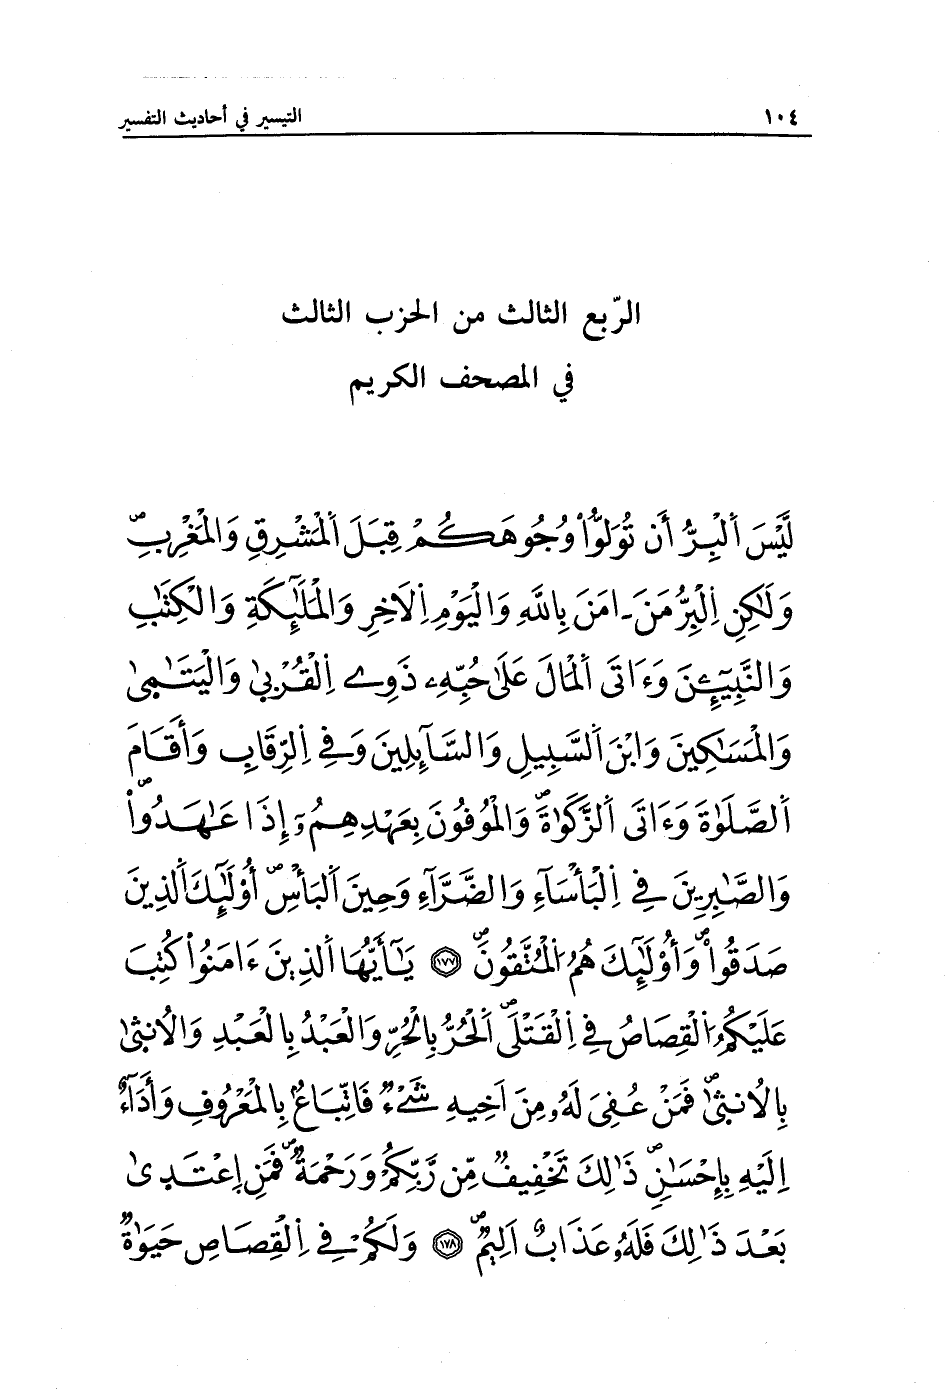 ١٠٤ التيسير في أحاديث التفسير
الرّبع الثالث من الحزب الثالث
في المصحف الكريم
لَّيْسَ اَ۬لْبِرُّ أَن تُوَلُّواْ وُجُوهَكُمْ قِبَلَ اَ۬لْمَشْرِقِ وَالْمَغْرِبِۖ
وَلَٰكِنِ اِ۬لْبِرُّ مَنَ ـ امَنَ بِاللَّهِ وَالْيَوْمِ اِ۬لَاخِرِ وَالْمَلَٰٓئِكَةِ وَالْكِتَٰبِ
وَالنَّبِيٓـِٕۧنَ وَءَاتَى اَ۬لْمَالَ عَلَىٰ حُبِّهِۦ ذَوِے اِ۬لْقُرْبىٰ وَالْيَتَٰمىٰ
وَالْمَسَٰكِينَ وَابْنَ اَ۬لسَّبِيلِ وَالسَّآئِلِينَ وَفِے اِ۬لرِّقَابِ وَأَقَامَ
اَ۬لصَّلَوٰةَ وَءَاتَى اَ۬لزَّكَوٰةَۖ وَالْمُوفُونَ بِعَهْدِهِمُۥٓ إِذَا عَٰهَدُواْۖ
وَالصَّٰبِرِينَ فِے اِ۬لْبَأْسَآءِ وَالضَّرَّآءِ وَحِينَ اَ۬لْبَأْسِۖ أُوْلَٰٓئِكَ اَ۬لذِينَ
صَدَقُواْۖ وَأُوْلَٰٓئِكَ هُمُ اُ۬لْمُتَّقُونَۖ ١٧٧ يَٰٓأَيُّهَا اَ۬لذِينَ ءَامَنُواْ كُتِبَ
عَلَيْكُمُ اُ۬لْقِصَاصُ فِے اِ۬لْقَتْلَىۖ اَ۬لْحُرُّ بِالْحُرِّ وَالْعَبْدُ بِالْعَبْدِ وَالُانثىٰ
بِالُانثىٰۖ فَمَنْ عُفِيَ لَهُۥ مِنَ اَخِيهِ شَےْءٌ فَاتِّبَاعُۢ بِالْمَعْرُوفِ وَأَدَآءٌ
اِلَيْهِ بِإِحْسَٰنٖۖ ذَٰلِكَ تَخْفِيفٌ مِّن رَّبِّكُمْ وَرَحْمَةٌۖ فَمَنِ اِ۪عْتَدىٰ
بَعْدَ ذَٰلِكَ فَلَهُۥ عَذَابٌ اَلِيمٌۖ ١٧٨ وَلَكُمْ فِے اِ۬لْقِصَاصِ حَيَوٰةٌ